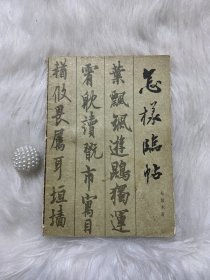 怎樣臨帖
葉飄颻遊鵾獨運
霄耽讀翫市寓目
猶攸畏屬耳垣墻